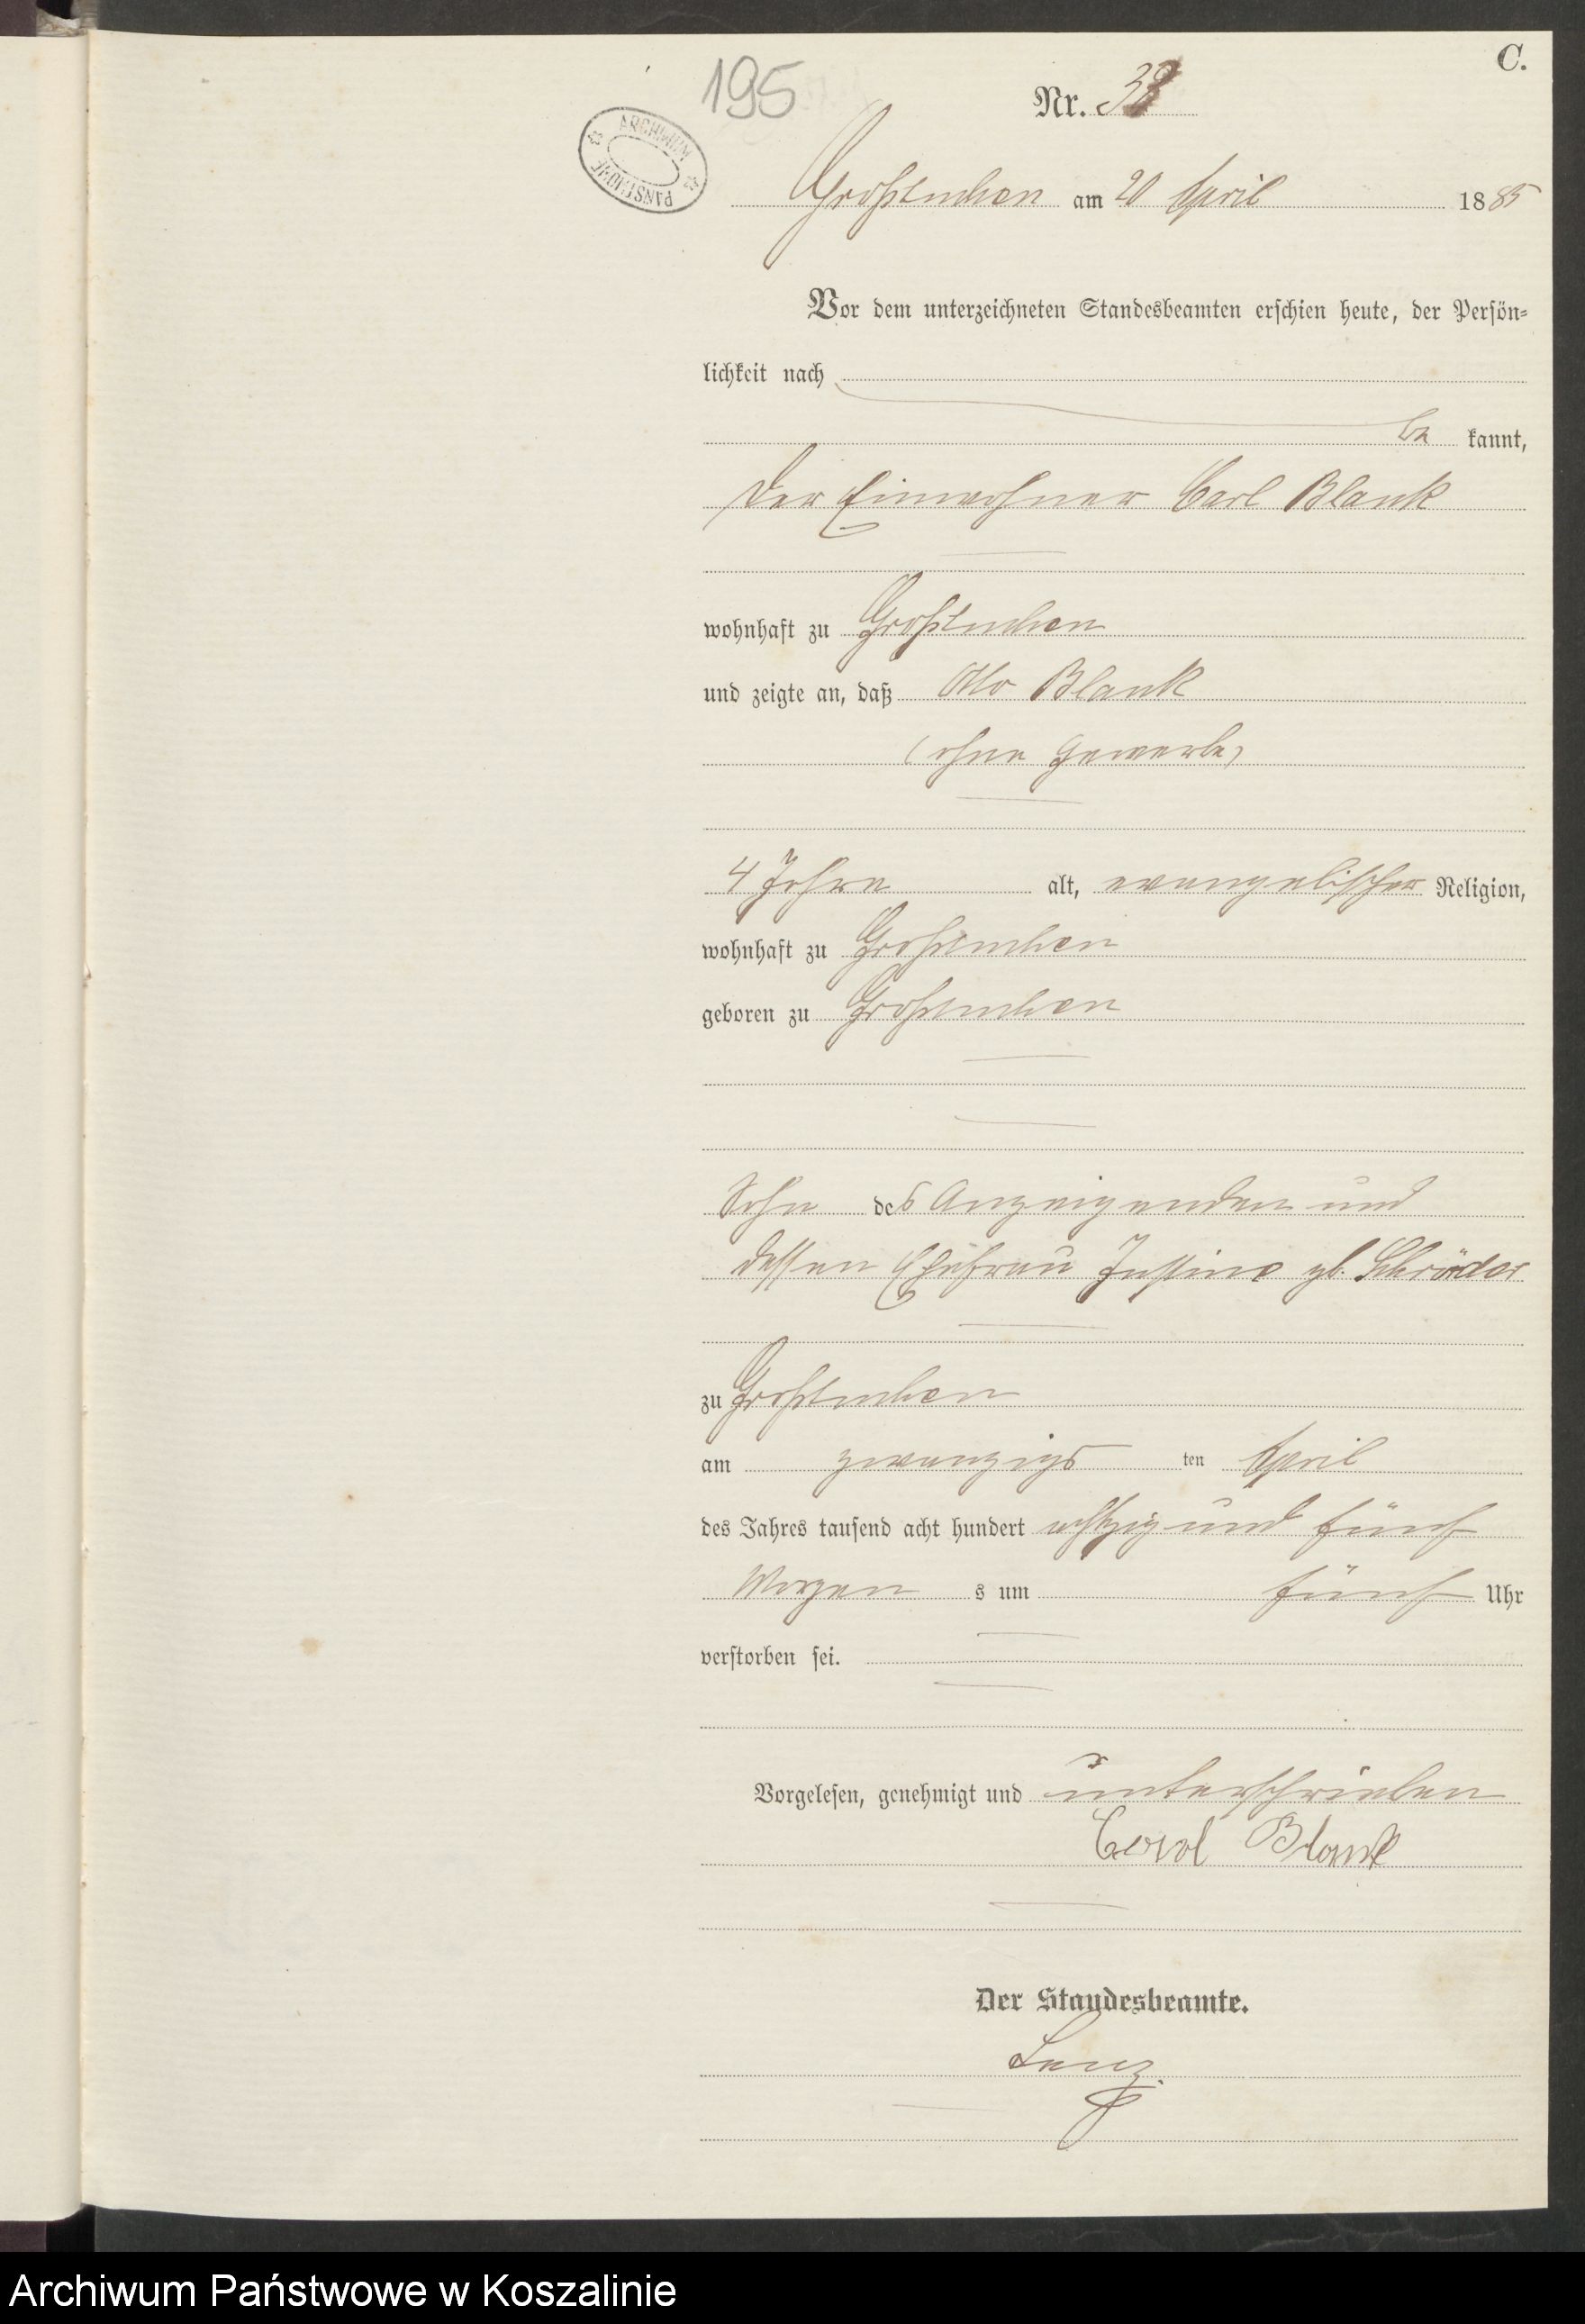 C.
195
Nr. 38
ARCHIWUM PAŃSTWOWE
Großtuchen am 20 April 1885
Vor dem unterzeichneten Standesbeamten erschien heute, der Persön-
lichkeit nach
be kannt,
der Einwohner Carl Blank
wohnhaft zu Großtuchen
und zeigte an, daß Otto Blank
(ohne Gewerbe)
4 Jahre alt, evangelischer Religion,
wohnhaft zu Großtuchen
geboren zu Großtuchen
Sohn des Anzeigenden und
dessen Ehefrau Justine gb. Schröder
zu Großtuchen
am zwanzigs ten April
des Jahres tausend acht hundert achtzig und fünf
Morgen s um fünf Uhr
verstorben sei.
Vorgelesen, genehmigt und unterschrieben
Carl Blank
Der Standesbeamte.
Lenz
Archiwum Państwowe w Koszalinie